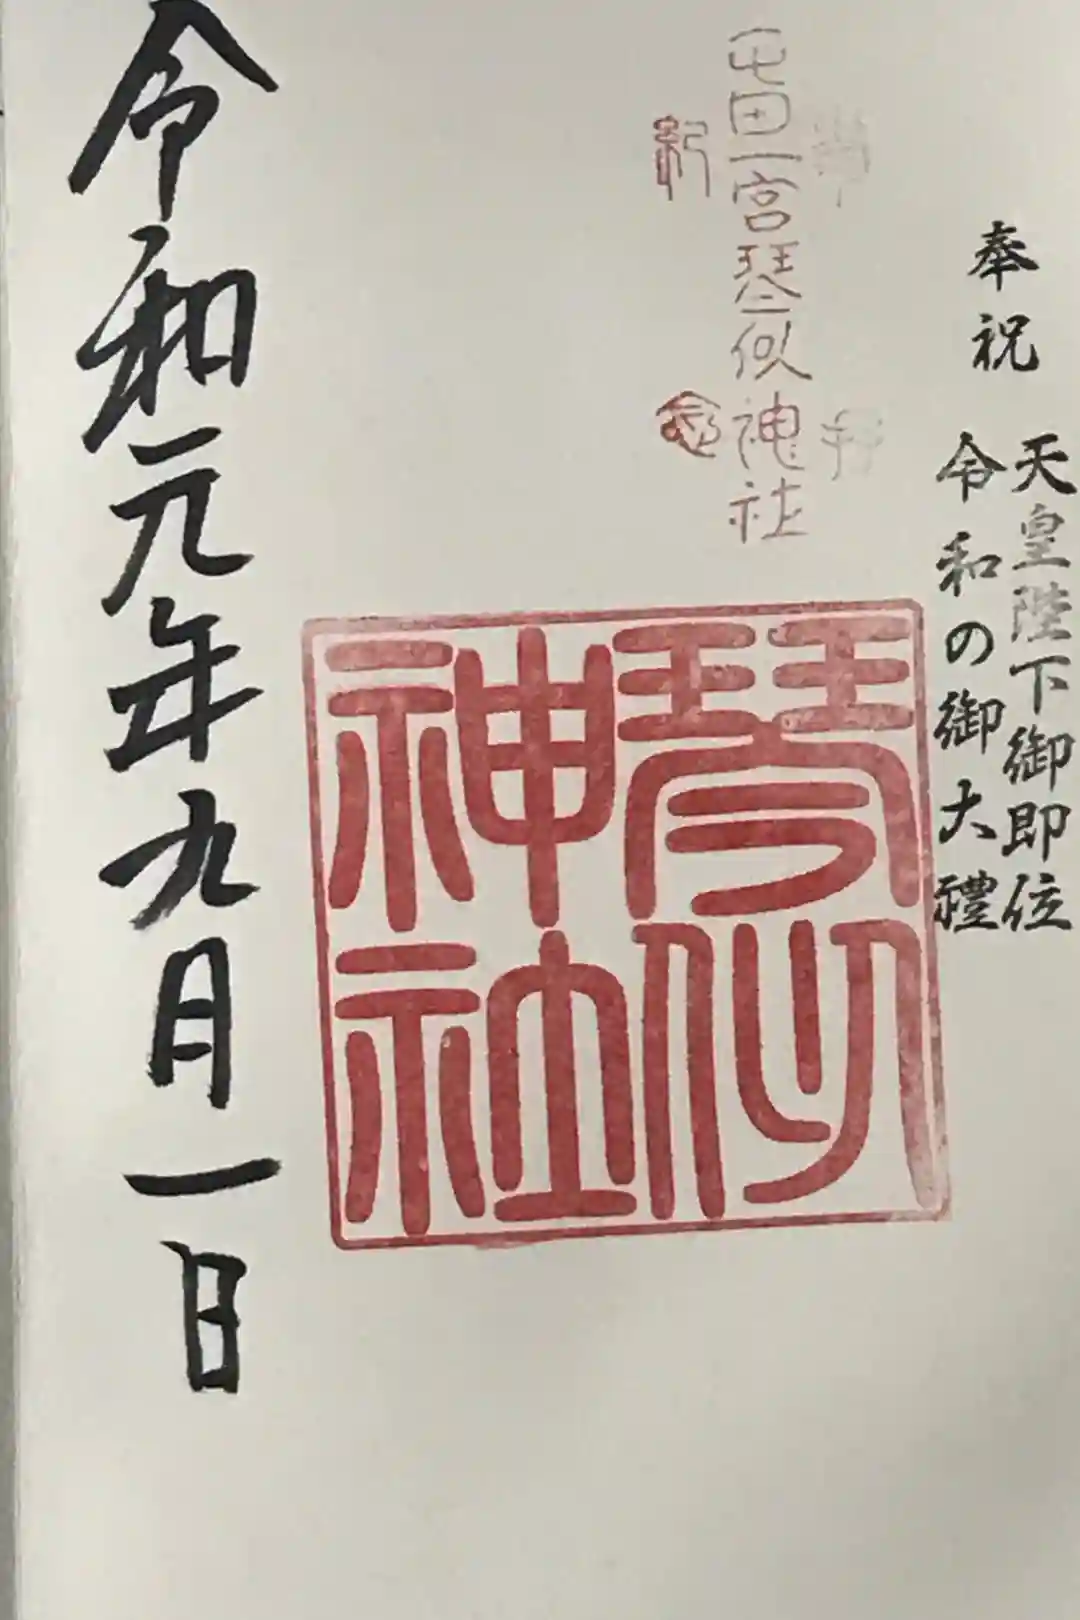 奉祝
天皇陛下御即位
令和の御大禮
屯田一宮琴似神社
紀念
琴似
神社
令和元年九月一日